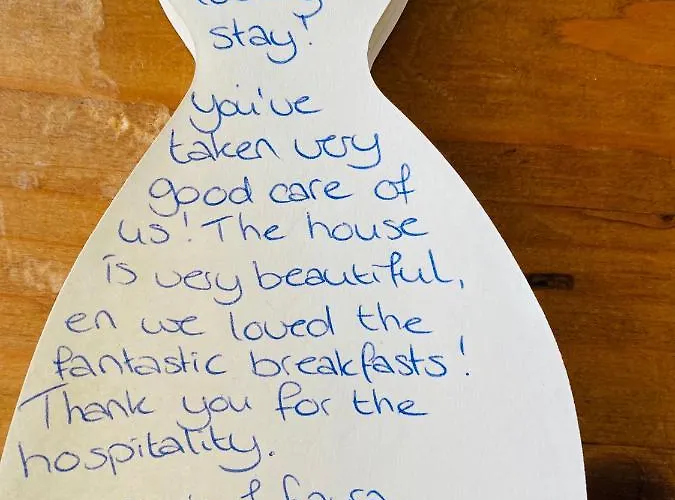 stay!
you've
taken very
good care of
us! The house
is very beautiful,
en we loved the
fantastic breakfasts!
Thank you for the
hospitality.